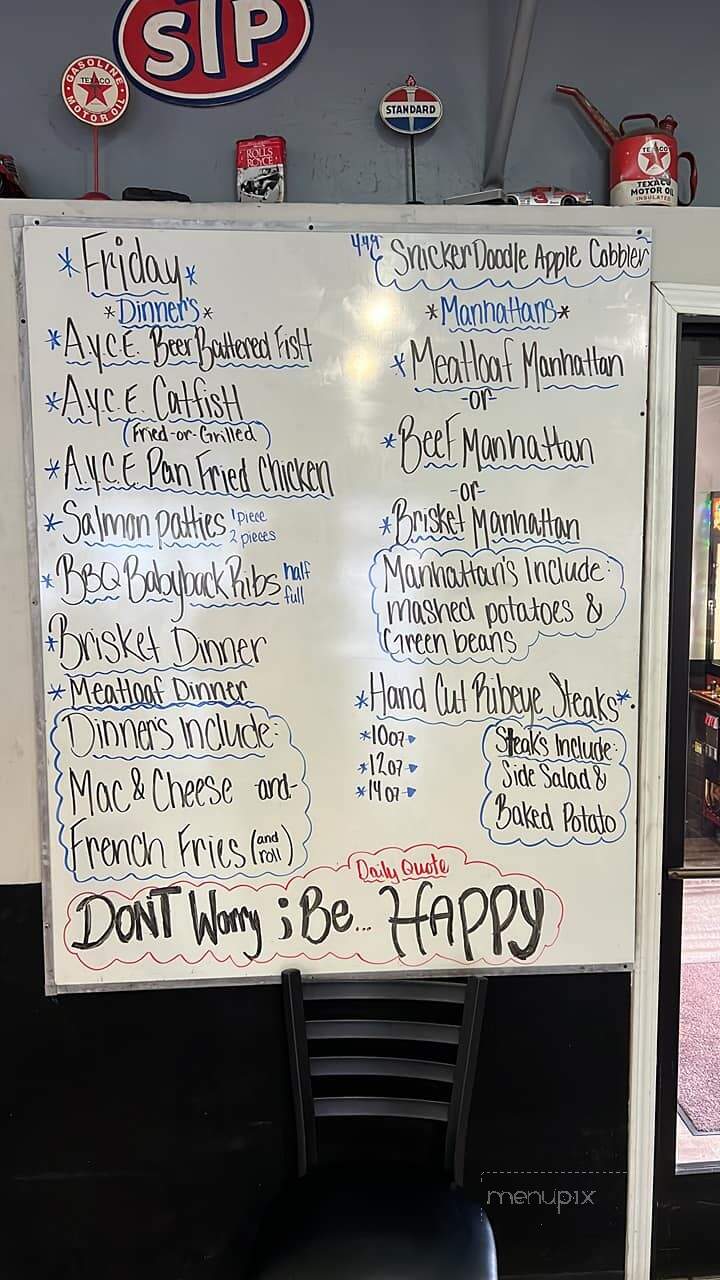 STP
GASOLINE
TEXACO
MOTOR OIL
ROLLS
ROYCE
STANDARD
TEXACO
TEXACO
MOTOR OIL
INSULATED
*Friday*
*Dinner's*
*A.Y.C.E. Beer Battered Fish
*A.Y.C.E. Catfish
(Fried-or-Grilled)
*A.Y.C.E Pan Fried Chicken
*Salmon patties 1 piece
2 pieces
*BBQ Babyback Ribs half
full
*Brisket Dinner
*Meatloaf Dinner
Dinners Include:
Mac & Cheese and-
French Fries (and
roll)
4.49 SnickerDoodle Apple Cobbler
*Manhattans*
*Meatloaf Manhattan
-or-
*Beef Manhattan
-or-
*Brisket Manhattan
Manhattan's Include:
mashed potatoes &
Green beans
*Hand Cut Ribeye Steaks*
*10oz
*12oz
*14oz
Steaks Include:
Side Salad &
Baked Potato
Daily Quote
DON'T Worry ; Be... HAPPY
menupix